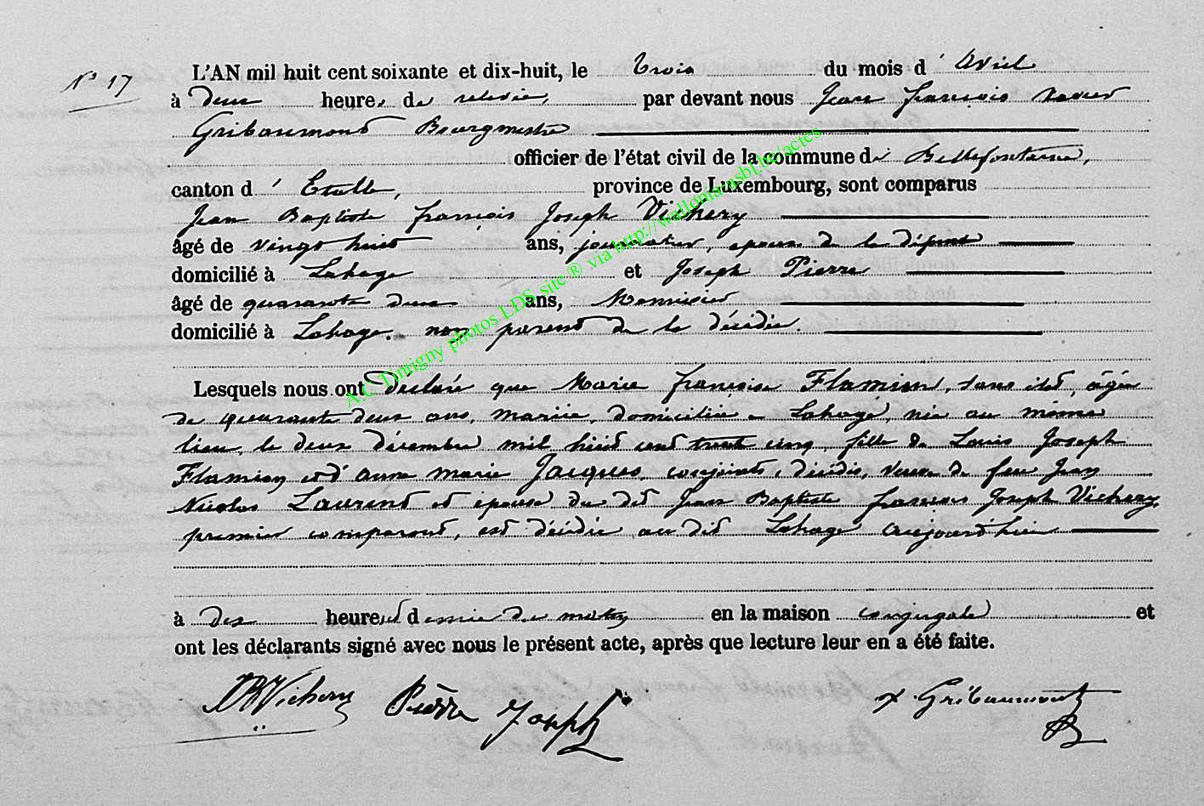 N° 17
L'AN mil huit cent soixante et dix-huit, le trois du mois d'Avril
à deux heures de relevée, par devant nous Jean François Xavier
Gribaumont Bourgmestre
officier de l'état civil de la commune de Bellefontaine,
canton d'Etalle, province de Luxembourg, sont comparus
Jean Baptiste François Joseph Vichery
âgé de vingt huit ans, journalier, époux de la défunte
domicilié à Lahage et Joseph Pierre
âgé de quarante deux ans, Menuisier
domicilié à Lahage. non parent de la décédée.
Lesquels nous ont déclaré que Marie Françoise Flamion, sans état, âgée
de quarante deux ans, mariée, domiciliée à Lahage, née au même
lieu, le deux décembre mil huit cent trente cinq, fille de Louis Joseph
Flamion et d'Anne Marie Jacques, conjoints, décédés, veuve de feu Jean
Nicolas Laurent et épouse du dit Jean Baptiste François Joseph Vichery,
premier comparant, est décédée au dit Lahage aujourd'hui
à dix heures et demie du matin en la maison conjugale et
ont les déclarants signé avec nous le présent acte, après que lecture leur en a été faite.
JBVichery Pierre Joseph Gribaumont
A.C. Tintigny photos LDS site ® via http://wallonia-asbl.be/actes